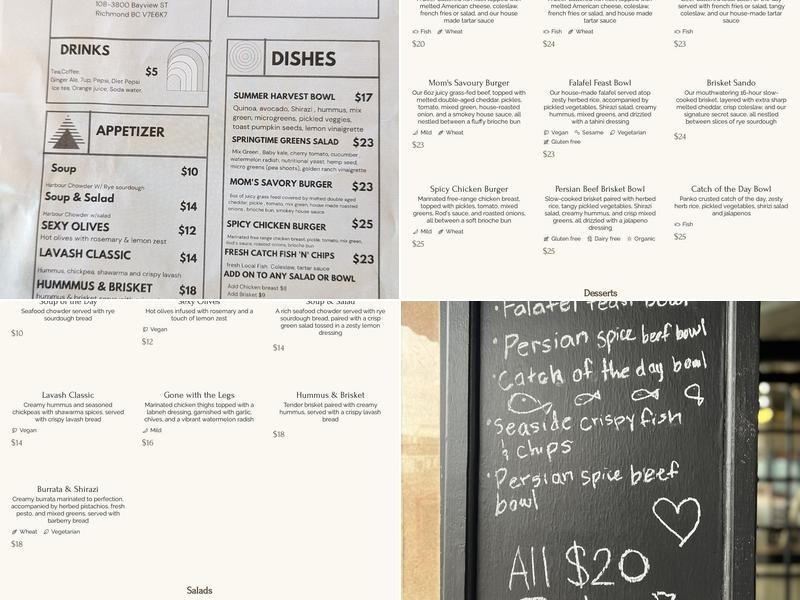 108-3800 Bayview ST
Richmond BC V7E6K7
DRINKS
Tea,Coffee,
Ginger Ale, 7up, Pepsi, Diet Pepsi
Ice tea, Orange juice, Soda water,
$5
APPETIZER
Soup $10
Harbour Chowder W/ Rye sourdough
Soup & Salad $14
Harbour Chowder w/salad
SEXY OLIVES $12
Hot olives with rosemary & lemon zest
LAVASH CLASSIC $14
Hummus, chickpea, shawarma and crispy lavash
HUMMMUS & BRISKET $18
DISHES
SUMMER HARVEST BOWL $17
Quinoa, avocado, Shirazi , hummus, mix
green, microgreens, pickled veggies,
toast pumpkin seeds, lemon vinaigrette
SPRINGTIME GREENS SALAD $23
Mix Green , Baby kale, cherry tomato, cucumber ,
watermelon radish, nutritional yeast, hemp seed,
micro greens (pea shoots), golden ranch vinaigrette
MOM'S SAVORY BURGER $23
6oz of juicy grass-feed beef covered by melted double aged
cheddar, pickle , tomato, mix green, house made roasted
onions , brioche bun, smokey house sauce
SPICY CHICKEN BURGER $25
Marinated free range chicken breast, pickle, tomato, mix green,
Rod's sauce, roasted onions, brioche bun
FRESH CATCH FISH 'N' CHIPS $23
fresh Local Fish, Coleslaw, tartar sauce
ADD ON TO ANY SALAD OR BOWL
Add Chicken breast $8
Add Brisket $9
melted American cheese, coleslaw,
french fries or salad, and our house
made tartar sauce
Fish Wheat
$20
melted American cheese, coleslaw,
french fries or salad, and house made
tartar sauce
Fish Wheat
$24
served with french fries or salad, tangy
coleslaw, and our house-made tartar
sauce
Fish
$23
Mom's Savoury Burger
Our 6oz juicy grass-fed beef, topped with
melted double-aged cheddar, pickles,
tomato, mixed green, house-roasted
onion, and a smokey house sauce, all
nestled between a fluffy brioche bun
Mild Wheat
$23
Falafel Feast Bowl
Our house-made falafel served atop
zesty herbed rice, accompanied by
pickled vegetables, Shirazi salad, creamy
hummus, mixed greens, and drizzled
with a tahini dressing
Vegan Sesame Vegetarian
Gluten free
$23
Brisket Sando
Our mouthwatering 16-hour slow-
cooked brisket, layered with extra sharp
melted cheddar, crisp coleslaw, and our
signature secret sauce, all nestled
between slices of rye sourdough
$24
Spicy Chicken Burger
Marinated free-range chicken breast,
topped with pickles, tomato, mixed
greens, Rod's sauce, and roasted onions,
all between a soft brioche bun
Mild Wheat
$25
Persian Beef Brisket Bowl
Slow-cooked brisket paired with herbed
rice, tangy pickled vegetables, Shirazi
salad, creamy hummus, and crisp mixed
greens, all drizzled with a jalapeno
dressing
Gluten free Dairy free Organic
$25
Catch of the Day Bowl
Panko crusted catch of the day, zesty
herb rice, pickled vegetables, shirizi salad
and jalapenos
Fish
$25
Desserts
Soup of the Day
Seafood chowder served with rye
sourdough bread
$10
Sexy Olives
Hot olives infused with rosemary and a
touch of lemon zest
Vegan
$12
Soup & Salad
A rich seafood chowder served with rye
sourdough bread, paired with a crisp
green salad tossed in a zesty lemon
dressing
$14
Lavash Classic
Creamy hummus and seasoned
chickpeas with shawarma spices, served
with crispy lavash bread
Vegan
$14
Gone with the Legs
Marinated chicken thighs topped with a
labneh dressing, garnished with garlic,
chives, and a vibrant watermelon radish
Mild
$16
Hummus & Brisket
Tender brisket paired with creamy
hummus, served with a crispy lavash
bread
$18
Burrata & Shirazi
Creamy burrata marinated to perfection,
accompanied by herbed pistachios, fresh
pesto, and mixed greens, served with
barberry bread
Wheat Vegetarian
$18
Salads
Falafel feast bowl
· Persian spice beef bowl
· Catch of the day bowl
· Seaside crispy fish
& chips
· Persian spice beef
bowl
All $20